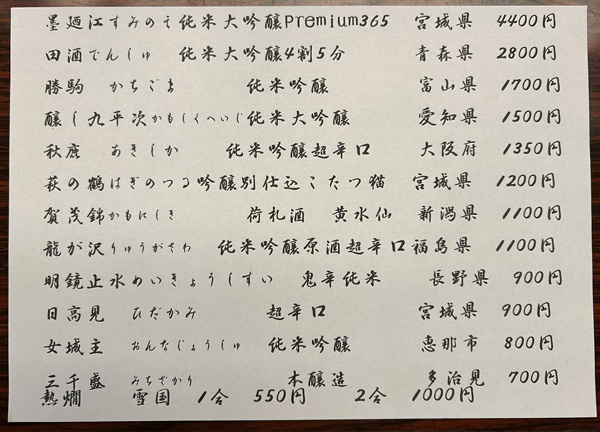 墨廼江すみのえ純米大吟醸Premium365 宮城県 4400円
田酒でんしゅ 純米大吟醸4割5分 青森県 2800円
勝駒 かちごま 純米吟醸 富山県 1700円
醸し九平次かもしくへいじ純米大吟醸 愛知県 1500円
秋鹿 あきしか 純米吟醸超辛口 大阪府 1350円
萩の鶴はぎのつる吟醸別仕込こたつ猫 宮城県 1200円
賀茂錦かもにしき 荷札酒 黄水仙 新潟県 1100円
龍が沢りゅうがさわ 純米吟醸原酒超辛口福島県 1100円
明鏡止水めいきょうしすい 鬼辛純米 長野県 900円
日高見 ひだかみ 超辛口 宮城県 900円
女城主 おんなじょうしゅ 純米吟醸 恵那市 800円
三千盛 みちざかり 本醸造 多治見 700円
熱燗 雪国 1合 550円 2合 1000円